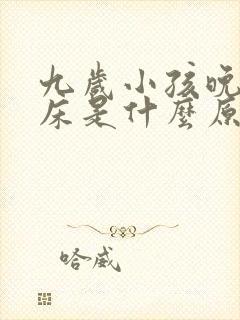 九歲小孩晚
床是什麼原
哈威